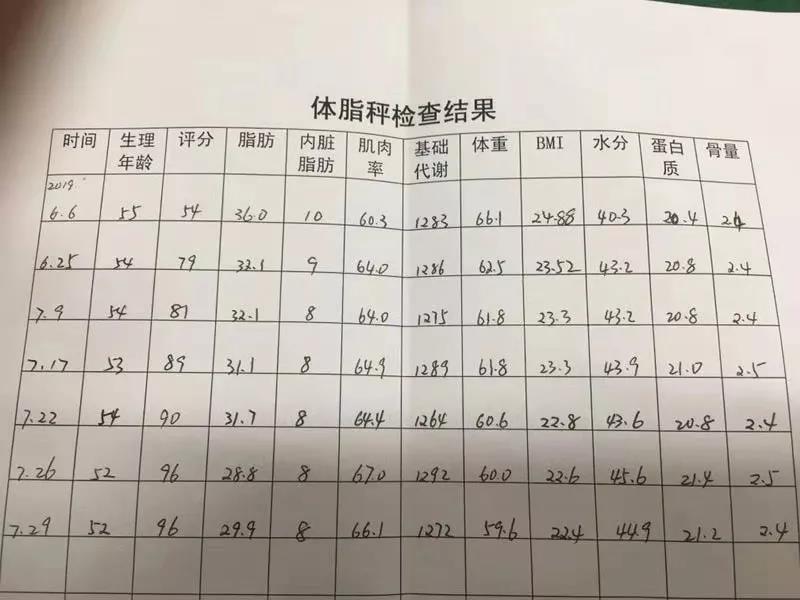 体脂秤检查结果
时间 生理年龄 评分 脂肪 内脏脂肪 肌肉率 基础代谢 体重 BMI 水分 蛋白质 骨量
2019.
6.6 55 54 36.0 10 60.3 1283 66.1 24.88 40.3 20.4 2.4
6.25 54 79 32.1 9 64.0 1286 62.5 23.52 43.2 20.8 2.4
7.9 54 81 32.1 8 64.0 1275 61.8 23.3 43.2 20.8 2.4
7.17 53 89 31.1 8 64.9 1289 61.8 23.3 43.9 21.0 2.5
7.22 54 90 31.7 8 64.4 1264 60.6 22.8 43.6 20.8 2.4
7.26 52 96 28.8 8 67.0 1292 60.0 22.6 45.6 21.4 2.5
7.29 52 96 29.9 8 66.1 1272 59.6 22.4 44.9 21.2 2.4